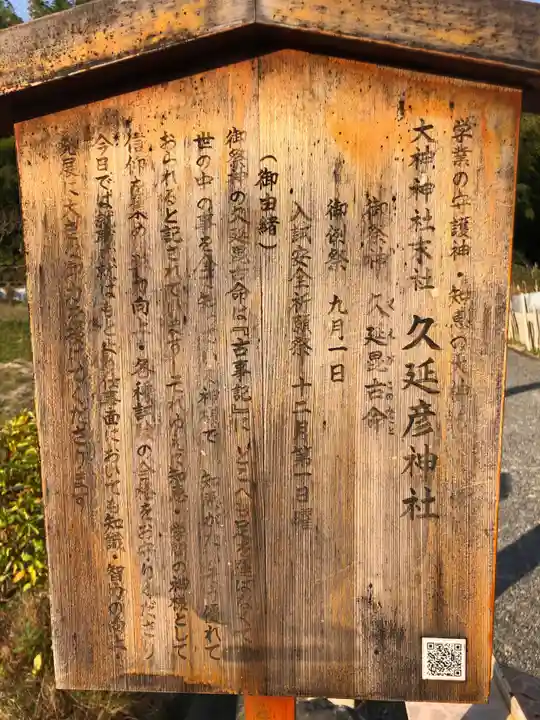 学業の守護神・知恵の大神
大神神社末社 久延彦神社
御祭神 久延毘古命
くえびこのみこと
御例祭 九月一日
入試安全祈願祭 十二月第一日曜
(御由緒)
御祭神の久延毘古命は『古事記』に、どこへも足を運ばなくて
世の中の事を神様で、知識が優れて
おられると記されています。それゆえに知恵・学習の神様として
信仰を集め、向上・各種試の合格をお守りくださり
今日では就はもとより仕事面においても知識・智力の
発展に大きな御くださいます